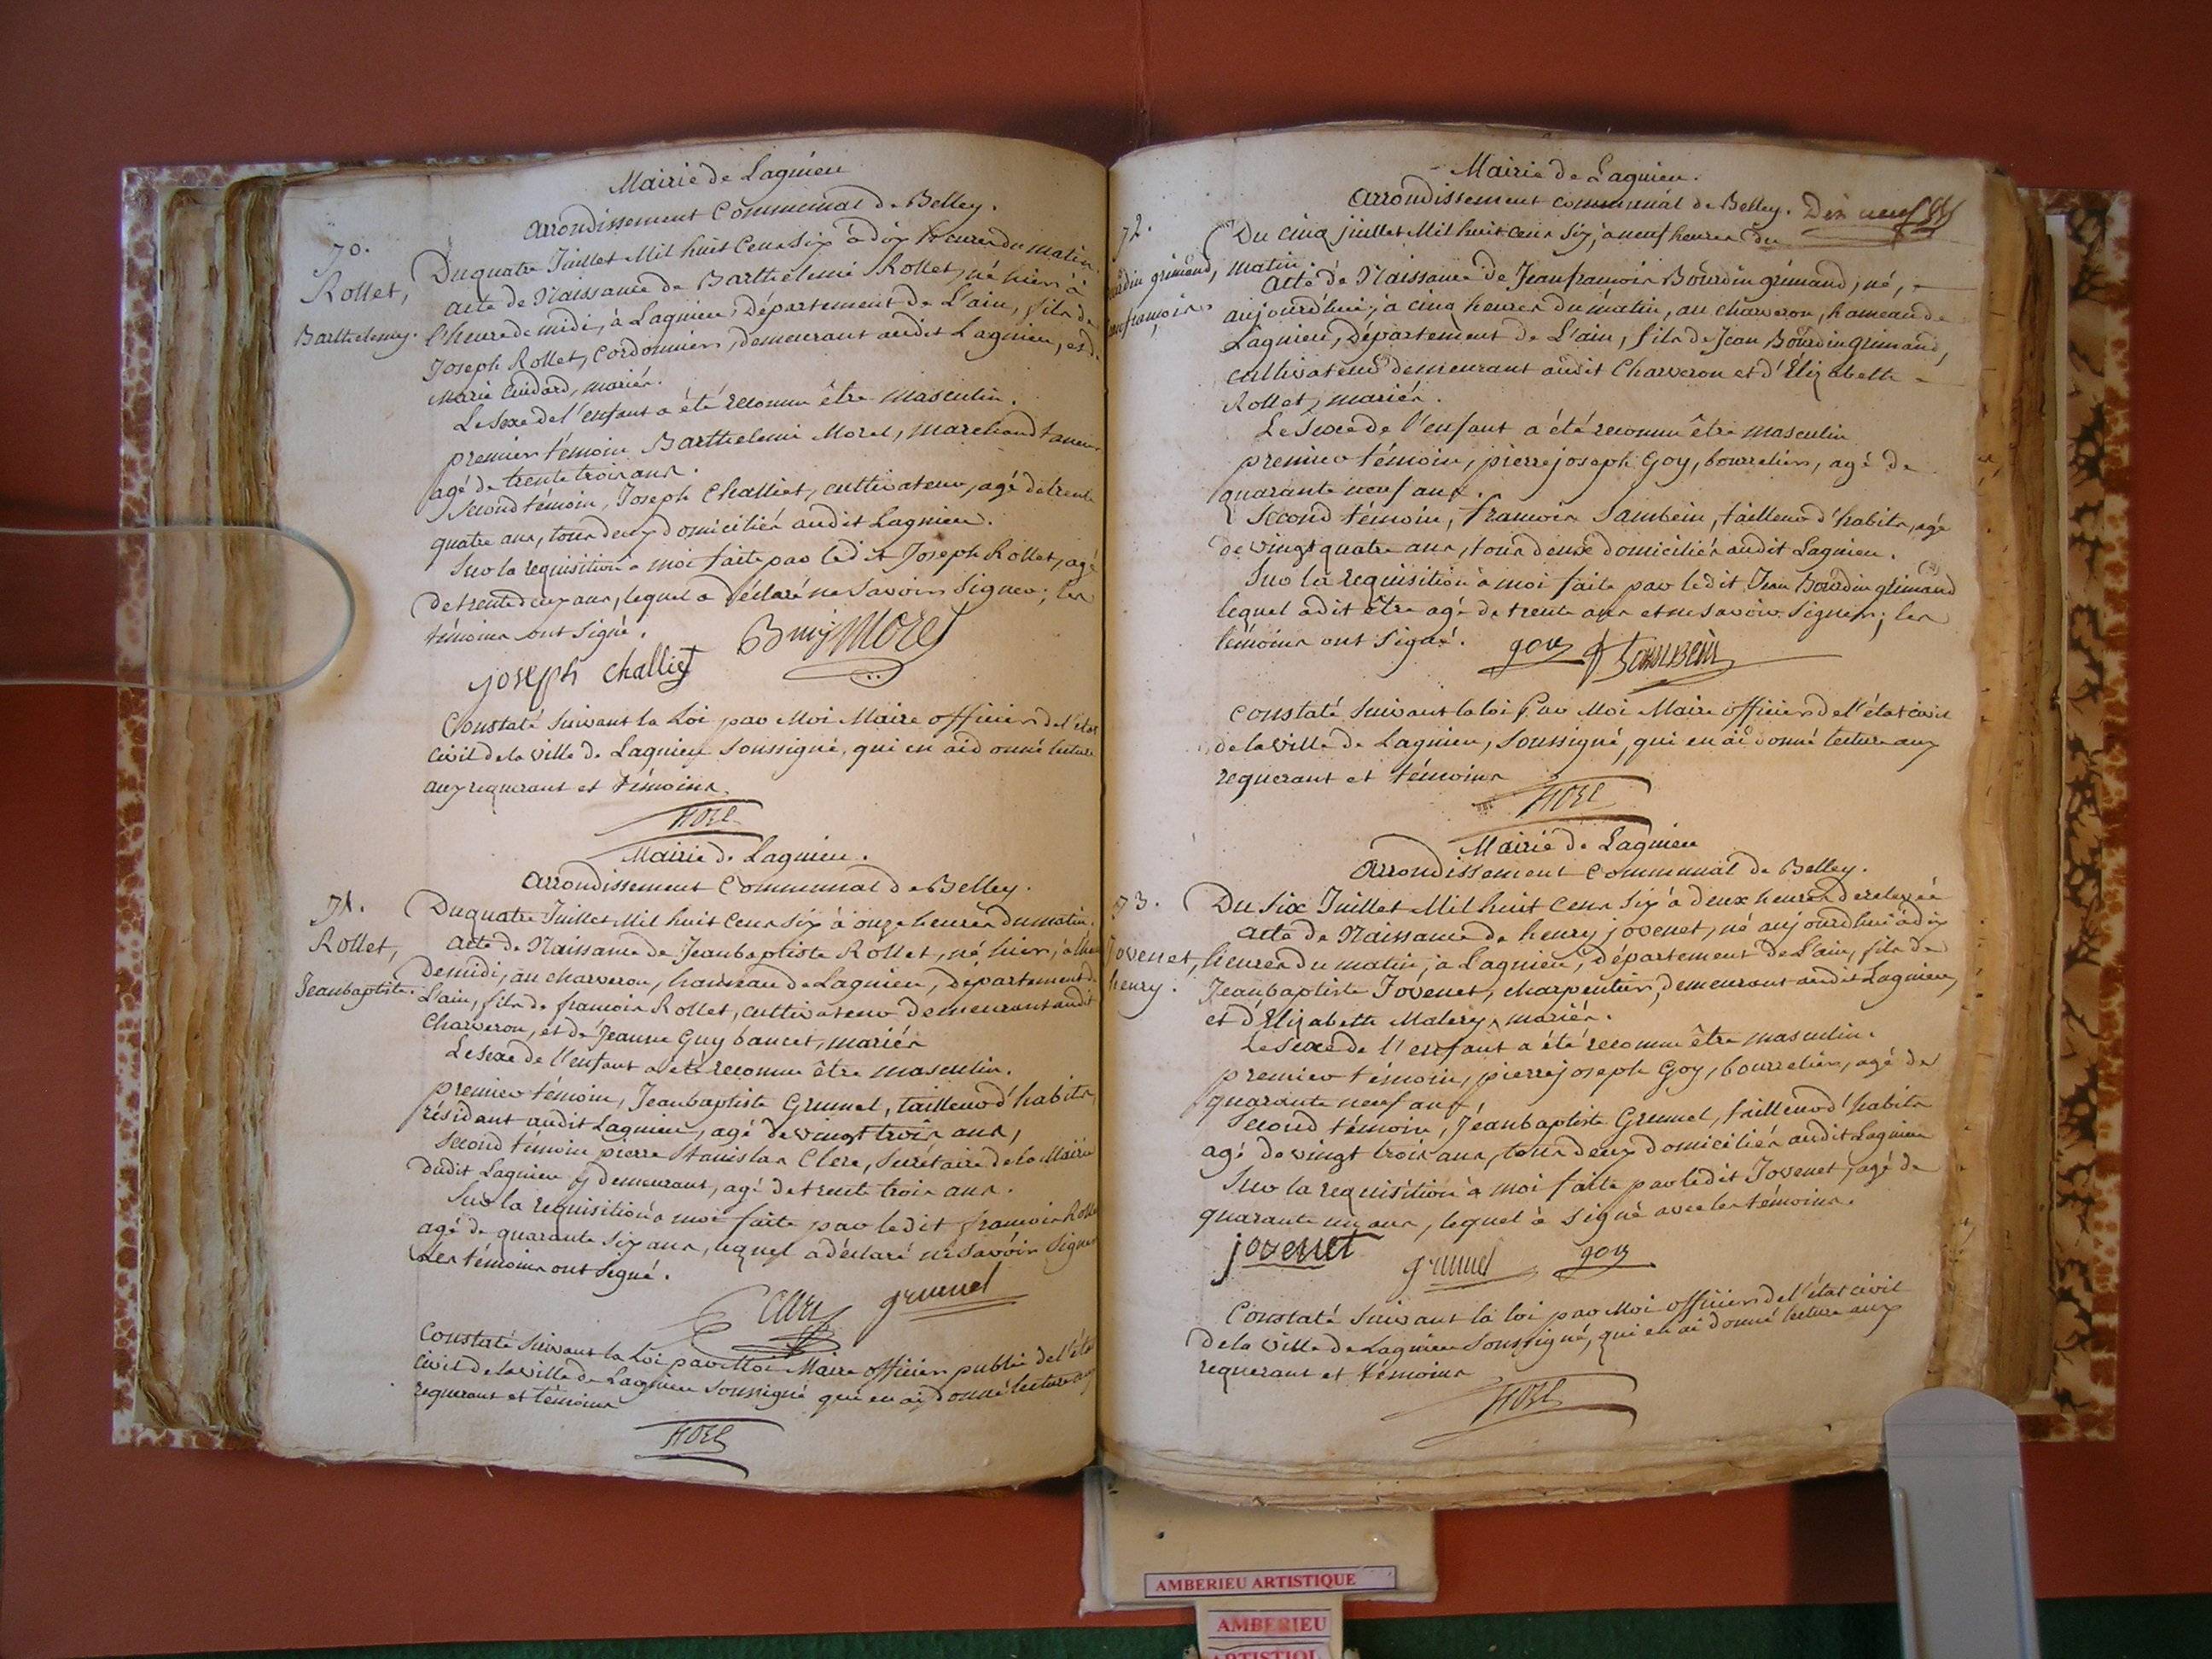 Mairie de Lagnieu
Arrondissement Communal de Belley.
70.
Rollet,
Barthelemy.
Du quatre Juillet Mil huit Cens Six à dix heures du matin.
Acte de Naissance de Barthelemi Rollet, né hier à
l'heure de midi, à Lagnieu, Département de L'ain, fils de
Joseph Rollet, Cordonnier, demeurant audit Lagnieu, et de
Marie Guidard, mariés.
Le Sexe de l'enfant a été reconnu être masculin.
premier témoin Barthelemi Morel, marchand taneur
agé de trente trois ans.
Second témoin, Joseph Challiet, cultivateur, agé de trente
quatre ans, tous deux domiciliés audit Lagnieu.
Sur la requisition à moi faite par ledit Joseph Rollet, agé
de trente deux ans, lequel a déclaré ne Savoir Signer; les
témoins ont Signé.
Bmy Morel
joseph challiet
Constaté Suivant la Loi par Moi Maire officier de l'état
Civil de la ville de Lagnieu Soussigné, qui en ai donné lecture
aux requerant et témoins.
Mairie de Lagnieu.
Arrondissement Communal de Belley.
71.
Rollet,
Jeanbaptiste.
Du quatre Juillet Mil huit Cens Six à onze heures du matin.
Acte de Naissance de Jeanbaptiste Rollet, né hier, à l'heure
De midi, au charveron, hameau de Lagnieu, département de
L'ain, fils de françois Rollet, cultivateur demeurant audit
Charveron, et de Jeanne Guy bancet, mariés
Le Sexe de l'enfant a été reconnu être masculin.
premier témoin, Jeanbaptiste Grumel, tailleur d'habits,
résidant audit Lagnieu, agé de vingt trois ans,
Second témoin pierre Stanislas Clerc, Secrétaire de la Mairie
dudit Lagnieu y demeurant, agé de trente trois ans.
Sur la requisition à moi faite par ledit françois Rollet
agé de quarante Six ans, lequel a déclaré ne Savoir Signer
Les témoins ont Signé.
Clerc grumel
Constaté Suivant la Loi par Moi Maire officier public de l'état
Civil de la ville de Lagnieu Soussigné qui en ai donné lecture aux
requerant et témoins
Mairie de Lagnieu.
Arrondissement communal de Belley. Dix neuf
72.
Bourdin grimand,
Jean françois
Du cinq juillet Mil huit Cens Six, à neuf heures du
matin.
Acte de Naissance de Jean francois Bourdin grimand, né,
aujourd'hui, à cinq heures du matin, au charveron, hameau de
Lagnieu, Département de L'ain, fils de Jean Bourdin grimand,
cultivateur demeurant audit Charveron et d'Elizabeth
Rollet, mariés.
Le Sexe de l'enfant a été reconnu être masculin
premier témoin, pierre joseph Goy, bourrelier, agé de
quarante neuf ans.
Second témoin, francois Sambein, tailleur d'habits, agé
de vingt quatre ans, tous deux domiciliés audit Lagnieu.
Sur la requisition à moi faite par ledit Jean Bourdin grimand
lequel a dit être agé de trente ans et ne savoir Signer; les
témoins ont Signé. goy f Sambein
Constaté Suivant la loi Par Moi Maire officier de l'état civil
de la ville de Lagnieu, Soussigné, qui en ai donné lecture aux
requerant et témoins
Mairie de Lagnieu
Arrondissement Communal de Belley.
73.
Jovenet,
henry.
Du Six Juillet Mil huit Cens Six à deux heures de relevée
Acte de Naissance de henry jovenet, né aujourd'hui à dix
heures du matin, à Lagnieu, département de L'ain, fils de
Jeanbaptiste Jovenet, charpentier, demeurant audit Lagnieu
et d'Elizabeth Malery, mariés.
Le Sexe de l'enfant a été reconnu être masculin.
premier témoin, pierre joseph Goy, bourrelier, agé de
quarante neuf ans,
Second témoin, Jeanbaptiste Grumel, tailleur d'habits
agé de vingt trois ans, tous deux domiciliés audit Lagnieu
Sur la requisition à moi faite par ledit Jovenet, agé de
quarante un ans, lequel a Signé avec les témoins.
jovenet
grumel goy
Constaté Suivant la loi par Moi officier de l'état civil
de la ville de Lagnieu Soussigné, qui en ai donné lecture aux
requerant et témoins
AMBERIEU ARTISTIQUE
AMBERIEU